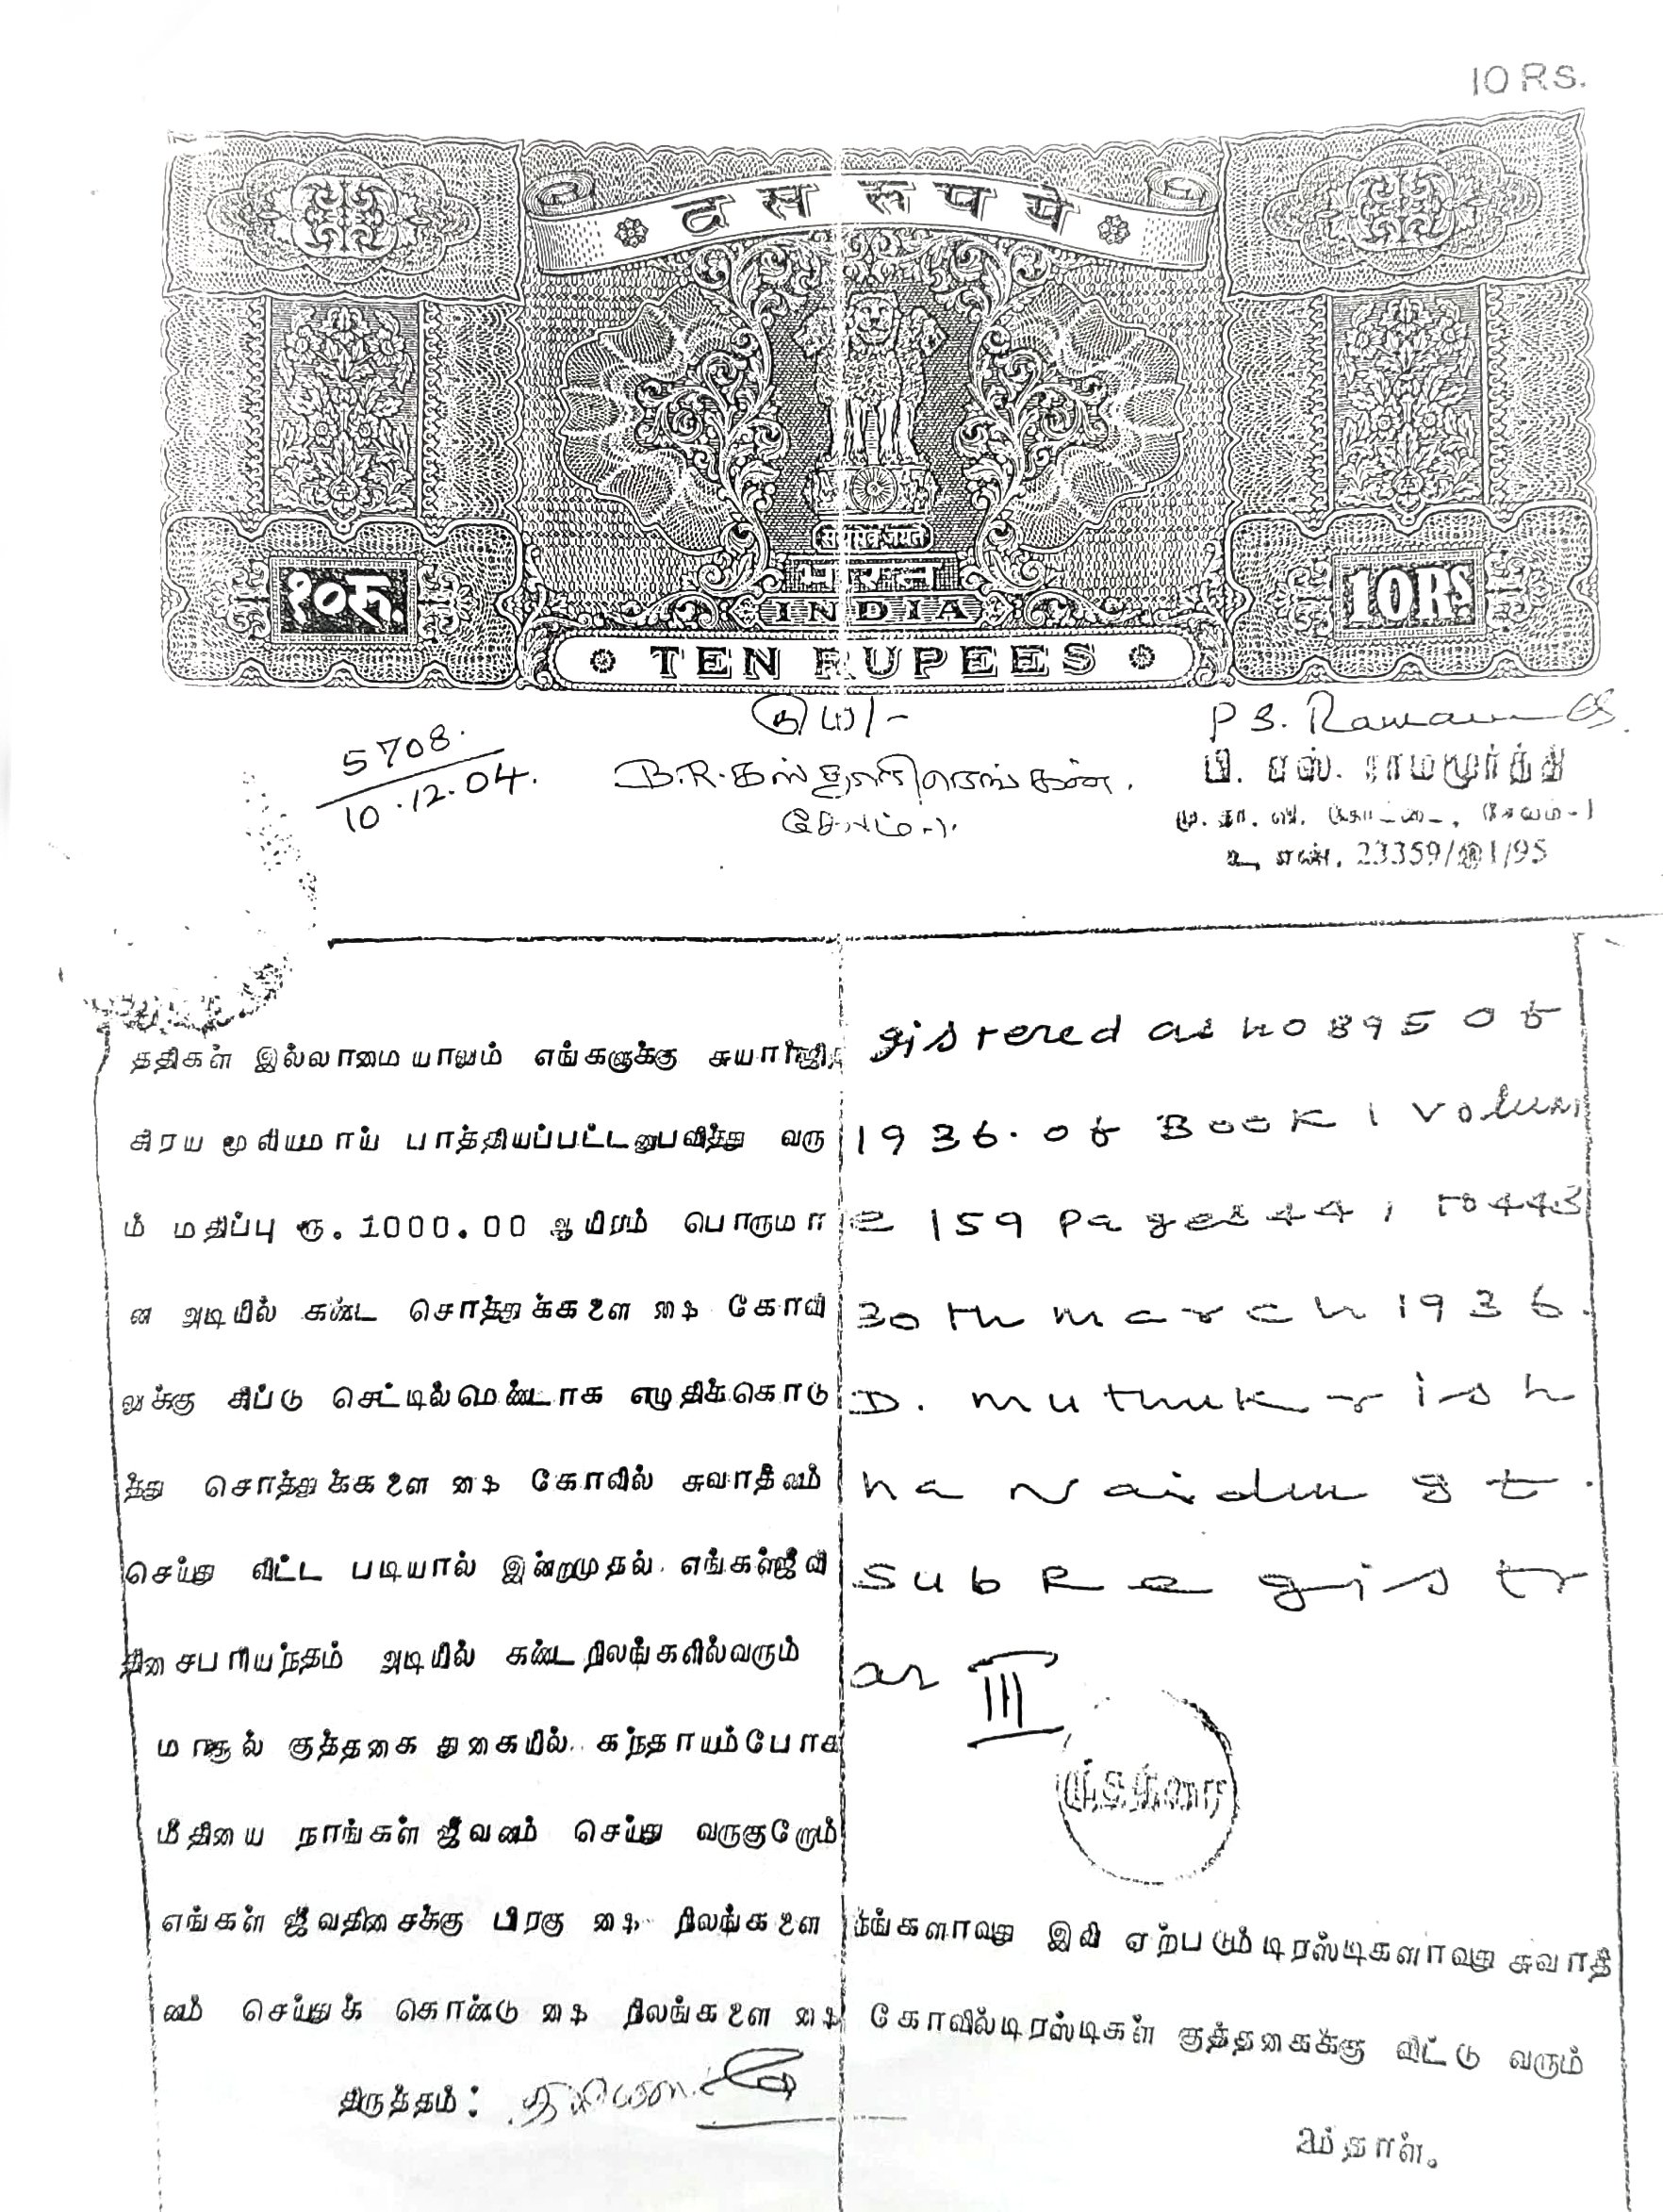 10 RS.
दस रुपये
सत्यमेव जयते
भारत
INDIA
१०रु.
10Rs
TEN RUPEES
5708.
10.12.04.
B.R.கஸ்தூரிரெங்கன்.
சேலம்-1.
P S. Ramam
பி. எஸ். ராமமூர்த்தி
மு. தா. வி. கோட்டை, சேலம்-1
உ, எண். 23359/இ1/95
ததிகள் இல்லாமையாலும் எங்களுக்கு சுயார்ஜித
கிரய மூலியமாய் பாத்தியப்பட்டனுபவித்து வரு
ம் மதிப்பு ரூ. 1000.00 ஆயிரம் பொருமா
ன அடியில் கண்ட சொத்துக்களை ஷை கோவி
லுக்கு கிப்டு செட்டில்மெண்டாக எழுதிக்கொடு
த்து சொத்துக்களை ஷை கோவில் சுவாதீனம்
செய்து விட்ட படியால் இன்றுமுதல் எங்கள்ஜீவி
திசைபரியந்தம் அடியில் கண்ட நிலங்களில்வரும்
மாசூல் குத்தகை துகையில் கந்தாயம்போக
மீதியை நாங்கள் ஜீவனம் செய்து வருகுறோம்
gistered as no 895 of
1936. of Book 1 Volum
e 159 pages 441 to 443
30th march 1936.
D. muthukrish
na Naidu gt.
Sub Registr
ar III
முத்திரை
எங்கள் ஜீவதிசைக்கு பிரகு ஷை நிலங்களை தங்களாவது இனி ஏற்படும்டிரஸ்டிகளாவது சுவாதீ
னம் செய்துக் கொண்டு ஷை நிலங்களை ஷை கோவில்டிரஸ்டிகள் குத்தகைக்கு விட்டு வரும்
திருத்தம்:
ம்தாள்.